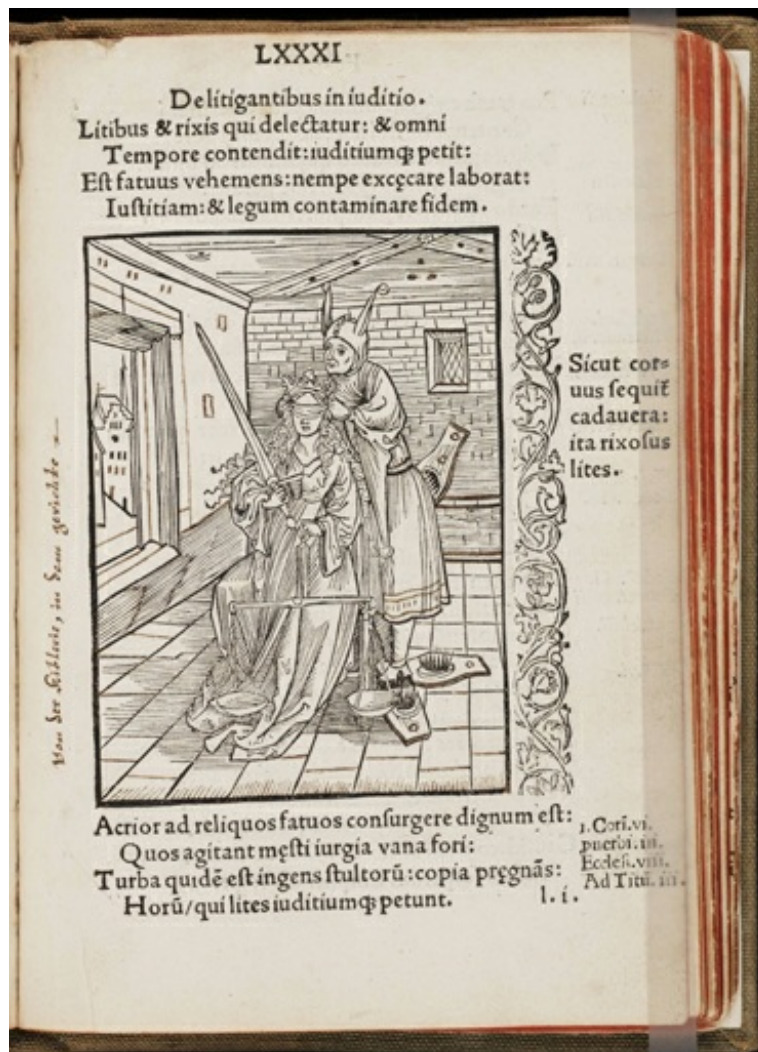 LXXXI
De litigantibus in iuditio.
Litibus & rixis qui delectatur: & omni
Tempore contendit: iuditiumqꝫ petit:
Est fatuus vehemens: nempe excęcare laborat:
Iustitiam: & legum contaminare fidem.
Sicut cor⸗
uus sequit̃
cadauera:
ita rixosus
lites.
Acrior ad reliquos fatuos consurgere dignum est:
Quos agitant męsti iurgia vana fori:
Turba quidē est ingens stultorū: copia pręgnãs:
Horū/qui lites iuditiumqꝫ petunt.
1.Cori.vi.
puerbi.iii.
Eccles.viii.
Ad Titū.iii.
l.i.